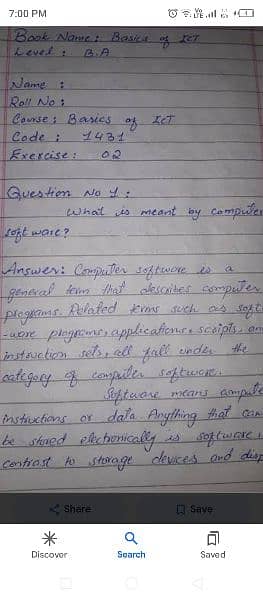 7:00 PM
Book Name: Basics of ICT
Level : B.A
Name :
Roll No :
Course : Basics of ICT
Code : 1431
Exercise : 02
Question No 1 :
What is meant by computer
soft ware?
Answer: Computer software is a
general term that describes computer
programs. Related terms such as soft
-ware programs, applications, scripts, an
instruction sets, all fall under the
category of computer software.
Software means compute
instructions or data. Anything that can
be stored electronically is software,
contrast to storage devices and disp
Share
Save
Discover
Search
Saved